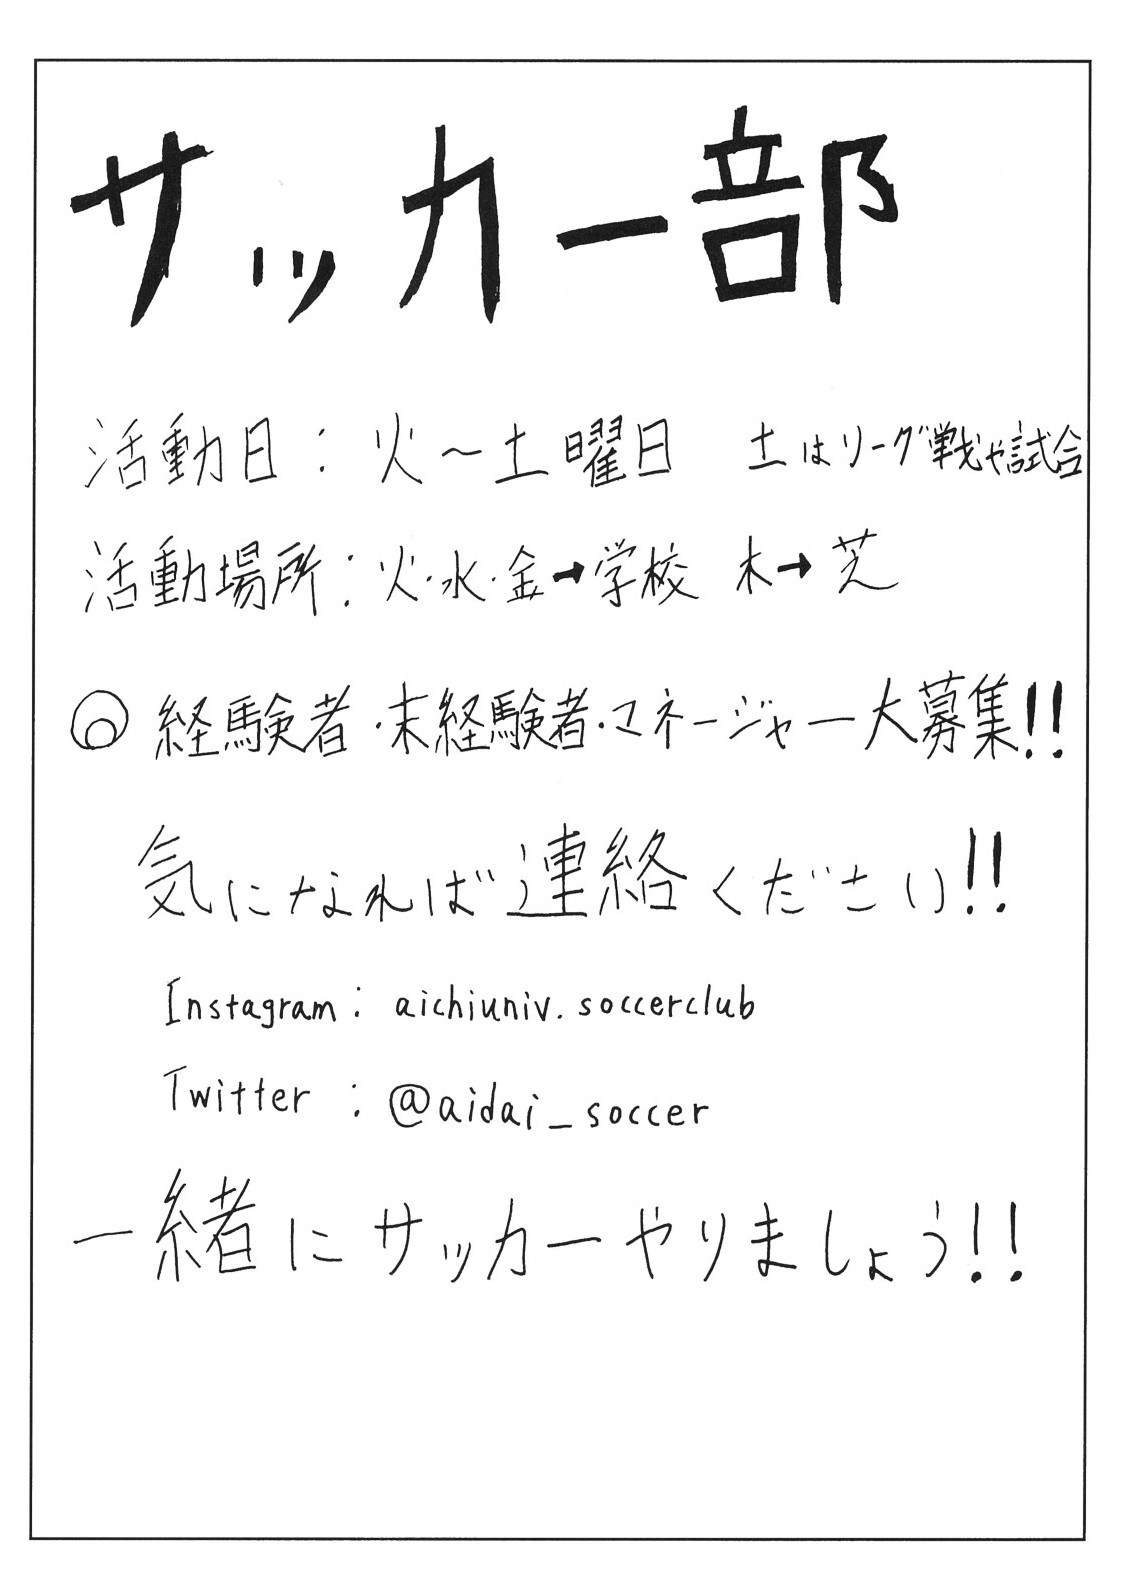 サッカー部
活動日：火～土曜日　土はリーグ戦や試合
活動場所：火・水・金→学校　木→芝
◎経験者・未経験者・マネージャー大募集!!
気になれば連絡ください!!
Instagram：aichiuniv.soccerclub
Twitter：@aidai_soccer
一緒にサッカーやりましょう!!